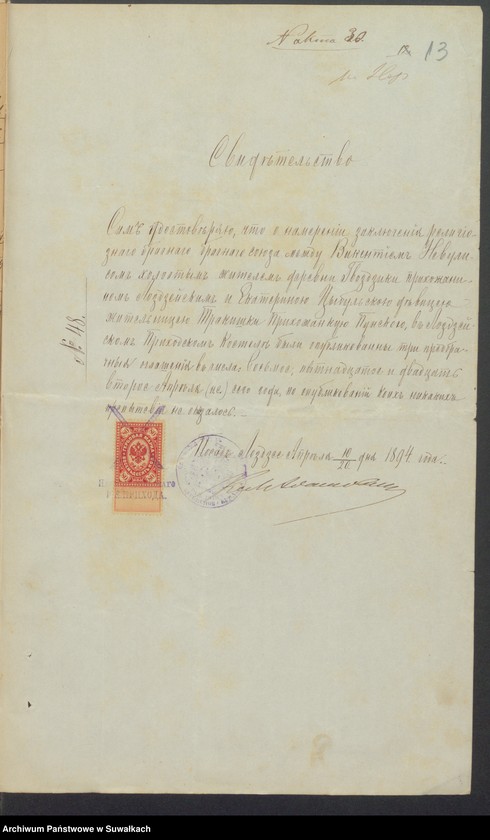 N akta 30.
13
Свидѣтельство
Симъ удостовѣряю, что о намѣреніи заключенія религіо-
знаго брачнаго союза между Викентіемъ Невули-
сомъ холостымъ жителемъ деревни Поздзики прихожани-
номъ Лоздзейскимъ и Екатериною Цыбульскою дѣвицею
жительницею Тракишки Прихожанкою Пунскою, въ Лоздзей-
скомъ Приходскомъ Костелѣ были опубликованы три предбра-
чныя оглашенія въ числахъ восьмого, пятнадцатого и двадцать
второго Апрѣля (не) сего года, по опубликованіи коихъ никакихъ
препятствій не оказалось.
№ 48.
Посадъ Лоздзее Апрѣля 10/20 дня 1894 года.
ПРИХОДА.
Archiwum Państwowe w Suwałkach